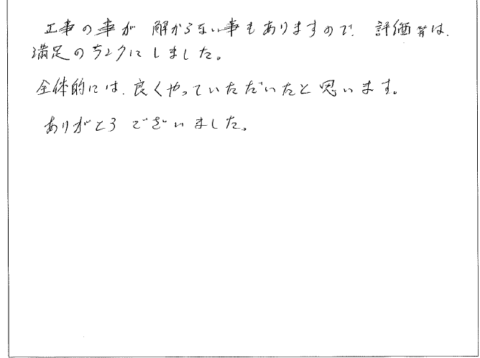 工事の事が 解からない事もありますので、評価皆は、
満足のチェックにしました。
全体的には、良くやっていただいたと思います。
ありがとうございました。